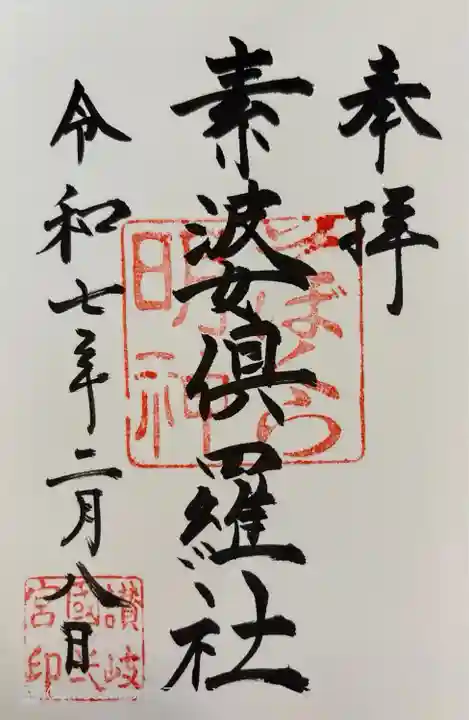 奉拝
素婆倶羅社
令和七年二月八日
明神
讃岐
國
宮印